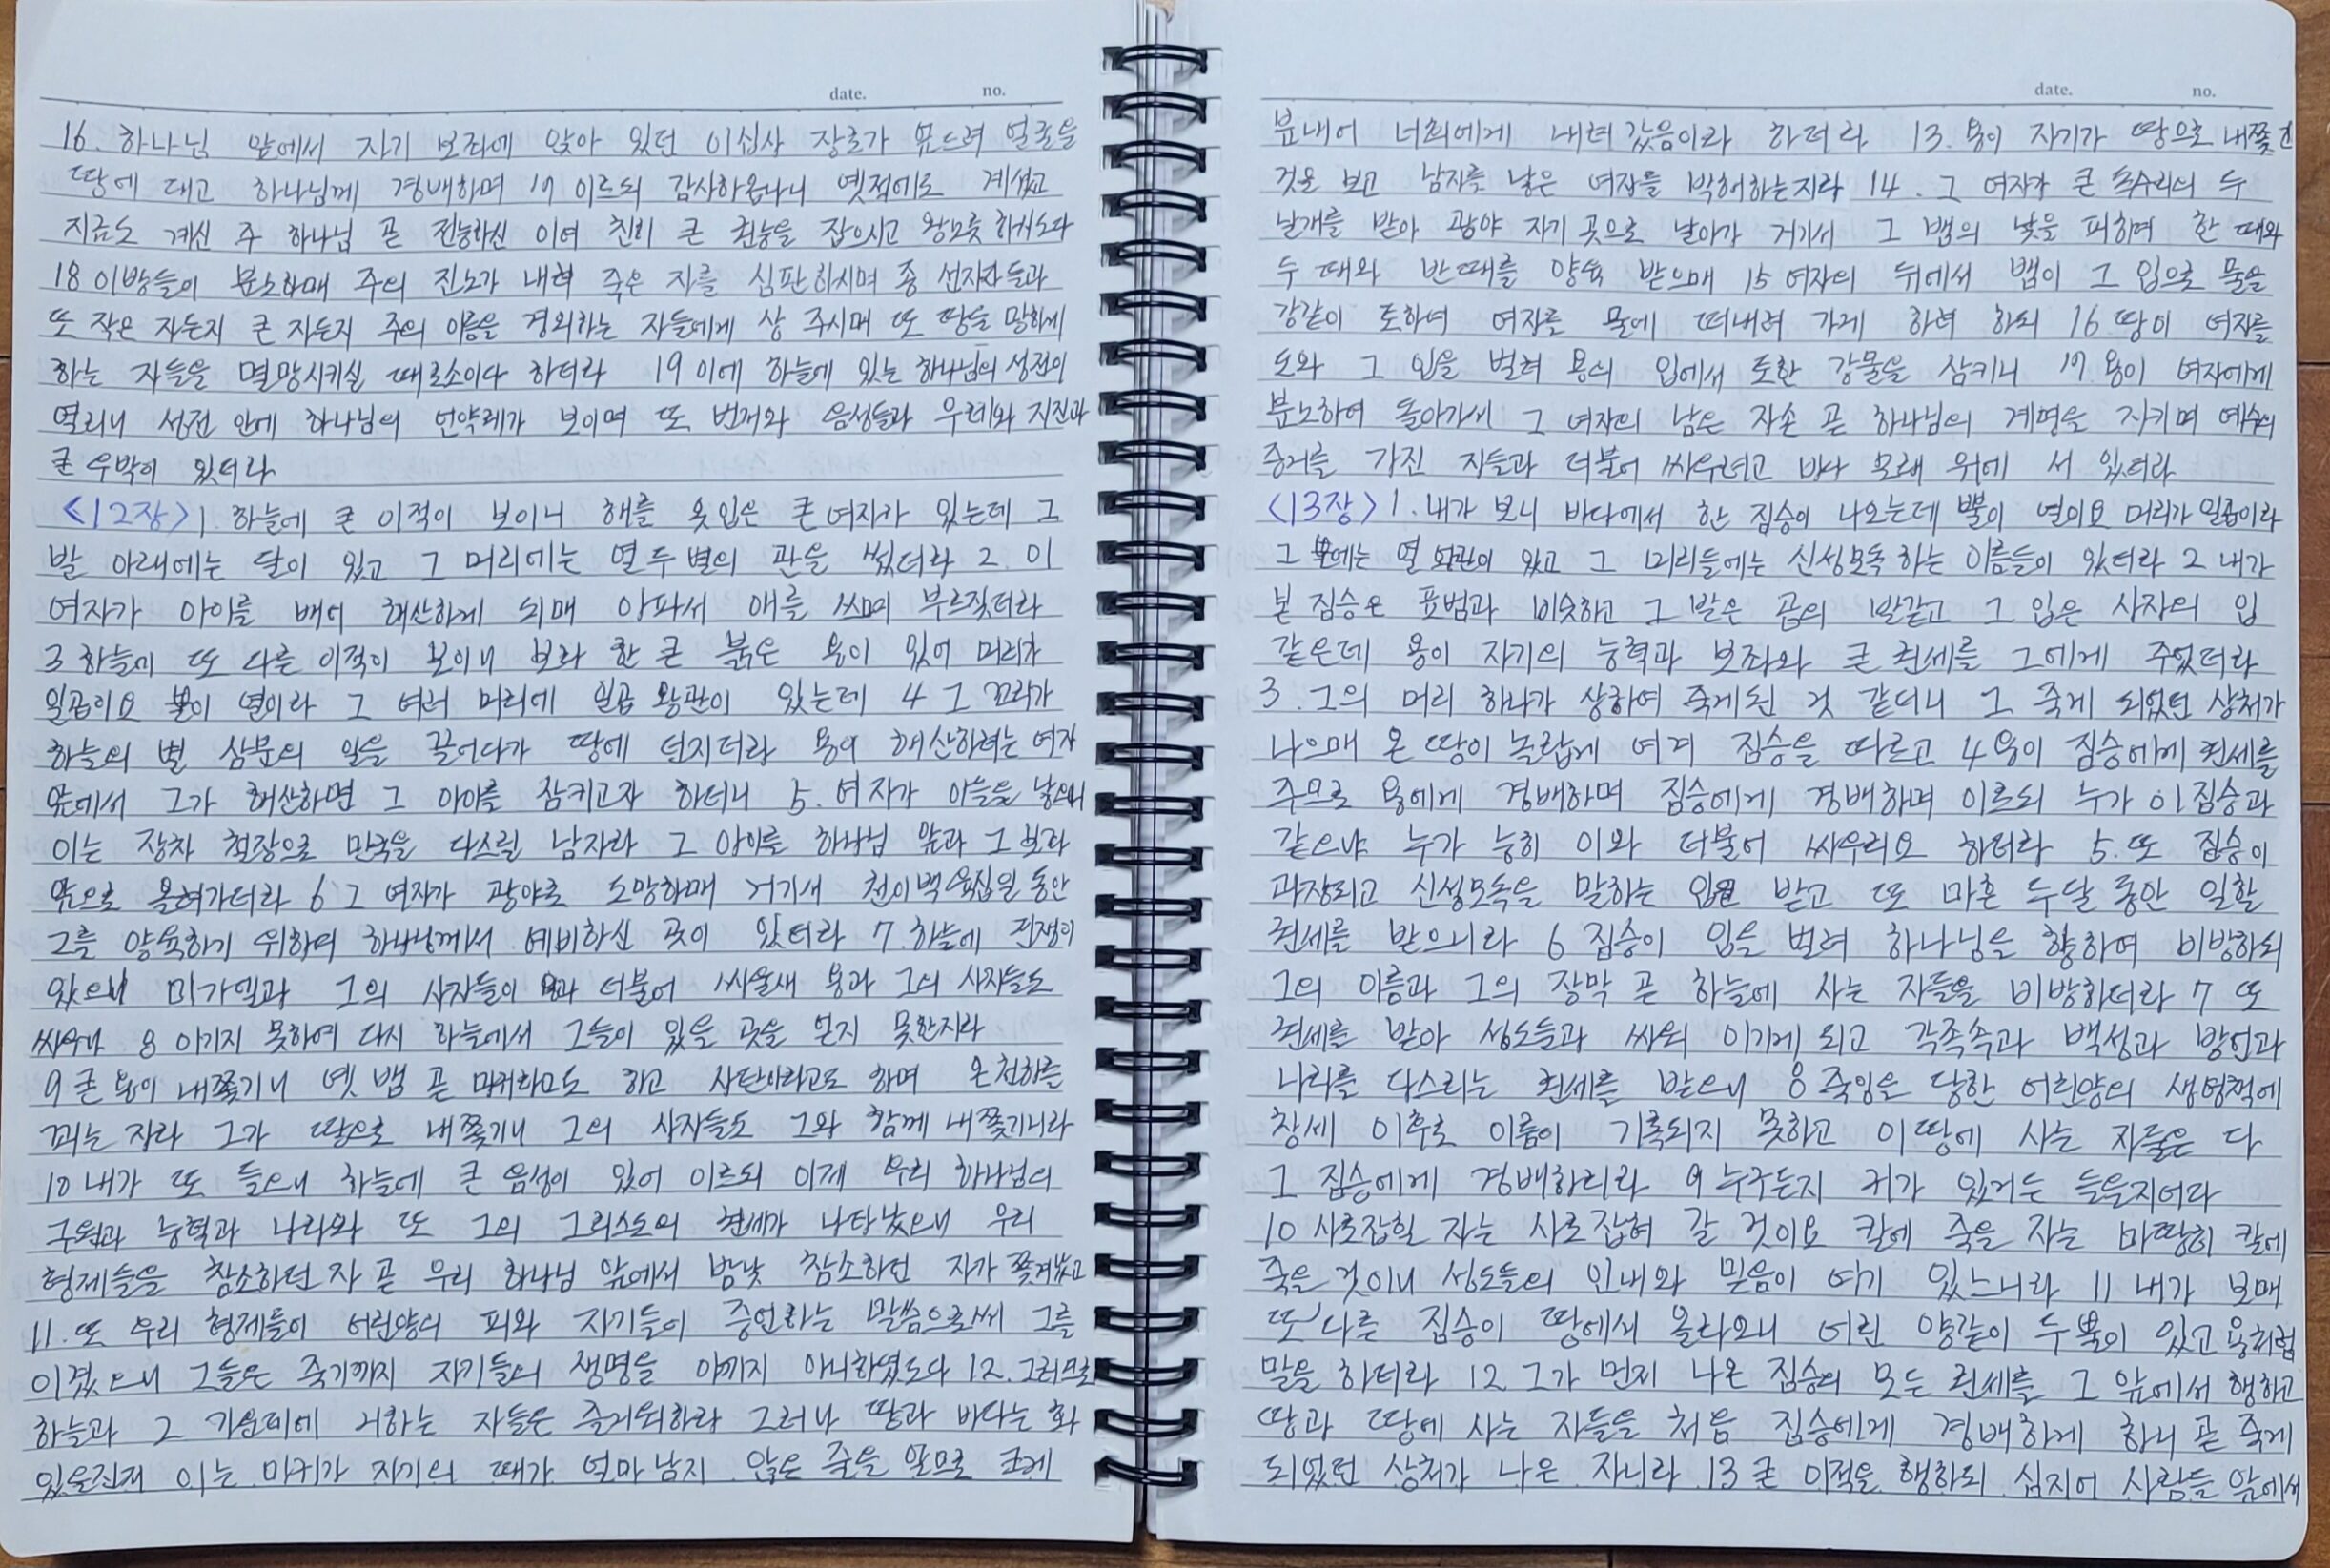 date. no.
16. 하나님 앞에서 자기 보좌에 앉아 있던 이십사 장로가 엎드려 얼굴을
땅에 대고 하나님께 경배하며 17 이르되 감사하옵나니 옛적에도 계셨고
지금도 계신 주 하나님 곧 전능하신 이여 친히 큰 권능을 잡으시고 왕노릇 하시도다
18 이방들이 분노하매 주의 진노가 내려 죽은 자를 심판하시며 종 선지자들과
또 작은 자든지 큰 자든지 주의 이름을 경외하는 자들에게 상 주시며 또 땅을 망하게
하는 자들을 멸망시키실 때로소이다 하더라 19 이에 하늘에 있는 하나님의 성전이
열리니 성전 안에 하나님의 언약궤가 보이며 또 번개와 음성들과 우레와 지진과
큰 우박이 있더라
<12장> 1 하늘에 큰 이적이 보이니 해를 옷 입은 큰 여자가 있는데 그
발 아래에는 달이 있고 그 머리에는 열두 별의 관을 썼더라 2. 이
여자가 아이를 배어 해산하게 되매 아파서 애를 쓰며 부르짖더라
3 하늘에 또 다른 이적이 보이니 보라 한 큰 붉은 용이 있어 머리가
일곱이요 뿔이 열이라 그 여러 머리에 일곱 왕관이 있는데 4 그 꼬리가
하늘의 별 삼분의 일을 끌어다가 땅에 던지더라 용이 해산하려는 여자
앞에서 그가 해산하면 그 아이를 삼키고자 하더니 5. 여자가 아들을 낳으니
이는 장차 철장으로 만국을 다스릴 남자라 그 아이를 하나님 앞과 그 보좌
앞으로 올려가더라 6 그 여자가 광야로 도망하매 거기서 천이백육십일 동안
그를 양육하기 위하여 하나님께서 예비하신 곳이 있더라 7. 하늘에 전쟁이
있으니 미가엘과 그의 사자들이 용과 더불어 싸울새 용과 그의 사자들도
싸우나 8 이기지 못하여 다시 하늘에서 그들이 있을 곳을 얻지 못한지라
9 큰 용이 내쫓기니 옛 뱀 곧 마귀라고도 하고 사탄이라고도 하며 온 천하를
꾀는 자라 그가 땅으로 내쫓기니 그의 사자들도 그와 함께 내쫓기니라
10 내가 또 들으니 하늘에 큰 음성이 있어 이르되 이제 우리 하나님의
구원과 능력과 나라와 또 그의 그리스도의 권세가 나타났으니 우리
형제들을 참소하던 자 곧 우리 하나님 앞에서 밤낮 참소하던 자가 쫓겨났고
11. 또 우리 형제들이 어린양의 피와 자기들이 증언하는 말씀으로써 그를
이겼으니 그들은 죽기까지 자기들의 생명을 아끼지 아니하였도다 12. 그러므로
하늘과 그 가운데에 거하는 자들은 즐거워하라 그러나 땅과 바다는 화
있을진저 이는 마귀가 자기의 때가 얼마 남지 않은 줄을 알므로 크게
date. no.
분내어 너희에게 내려갔음이라 하더라 13. 용이 자기가 땅으로 내쫓긴
것을 보고 남자를 낳은 여자를 박해하는지라 14. 그 여자가 큰 독수리의 두
날개를 받아 광야 자기 곳으로 날아가 거기서 그 뱀의 낯을 피하여 한 때와
두 때와 반 때를 양육 받으매 15 여자의 뒤에서 뱀이 그 입으로 물을
강같이 토하여 여자를 물에 떠내려 가게 하려 하되 16. 땅이 여자를
도와 그 입을 벌려 용의 입에서 토한 강물을 삼키니 17. 용이 여자에게
분노하여 돌아가서 그 여자의 남은 자손 곧 하나님의 계명을 지키며 예수의
증거를 가진 자들과 더불어 싸우려고 바다 모래 위에 서 있더라
<13장> 1. 내가 보니 바다에서 한 짐승이 나오는데 뿔이 열이요 머리가 일곱이라
그 뿔에는 열 왕관이 있고 그 머리들에는 신성모독 하는 이름들이 있더라 2 내가
본 짐승은 표범과 비슷하고 그 발은 곰의 발같고 그 입은 사자의 입
같은데 용이 자기의 능력과 보좌와 큰 권세를 그에게 주었더라
3. 그의 머리 하나가 상하여 죽게된 것 같더니 그 죽게 되었던 상처가
나으매 온 땅이 놀랍게 여겨 짐승을 따르고 4 용이 짐승에게 권세를
주므로 용에게 경배하며 짐승에게 경배하며 이르되 누가 이 짐승과
같으냐 누가 능히 이와 더불어 싸우리요 하더라 5. 또 짐승이
과장되고 신성모독을 말하는 입을 받고 또 마흔 두달 동안 일할
권세를 받으니라 6 짐승이 입을 벌려 하나님을 향하여 비방하되
그의 이름과 그의 장막 곧 하늘에 사는 자들을 비방하더라 7 또
권세를 받아 성도들과 싸워 이기게 되고 각족속과 백성과 방언과
나라를 다스리는 권세를 받으니 8 죽임을 당한 어린양의 생명책에
창세 이후로 이름이 기록되지 못하고 이 땅에 사는 자들은 다
그 짐승에게 경배하리라 9 누구든지 귀가 있거든 들을지어다
10 사로잡힐 자는 사로잡혀 갈 것이요 칼에 죽을 자는 마땅히 칼에
죽을 것이니 성도들의 인내와 믿음이 여기 있느니라 11 내가 보매
또 다른 짐승이 땅에서 올라오니 어린 양같이 두 뿔이 있고 용처럼
말을 하더라 12 그가 먼저 나온 짐승의 모든 권세를 그 앞에서 행하고
땅과 땅에 사는 자들을 처음 짐승에게 경배하게 하니 곧 죽게
되었던 상처가 나은 자니라 13 큰 이적을 행하되 심지어 사람들 앞에서